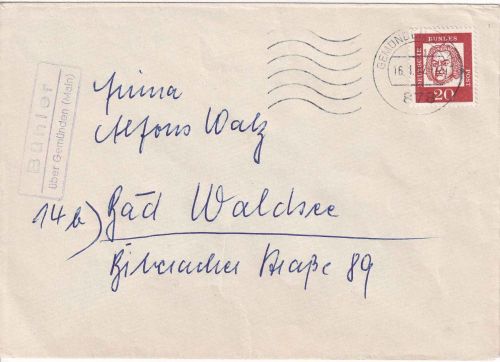 Bühler
über Gemünden (Main)
GEMÜNDEN
16.1
878
DEUTSCHE BUNDESPOST
20
Firma
Alfons Walz
14b) Bad Waldsee
Biberacher Straße 89